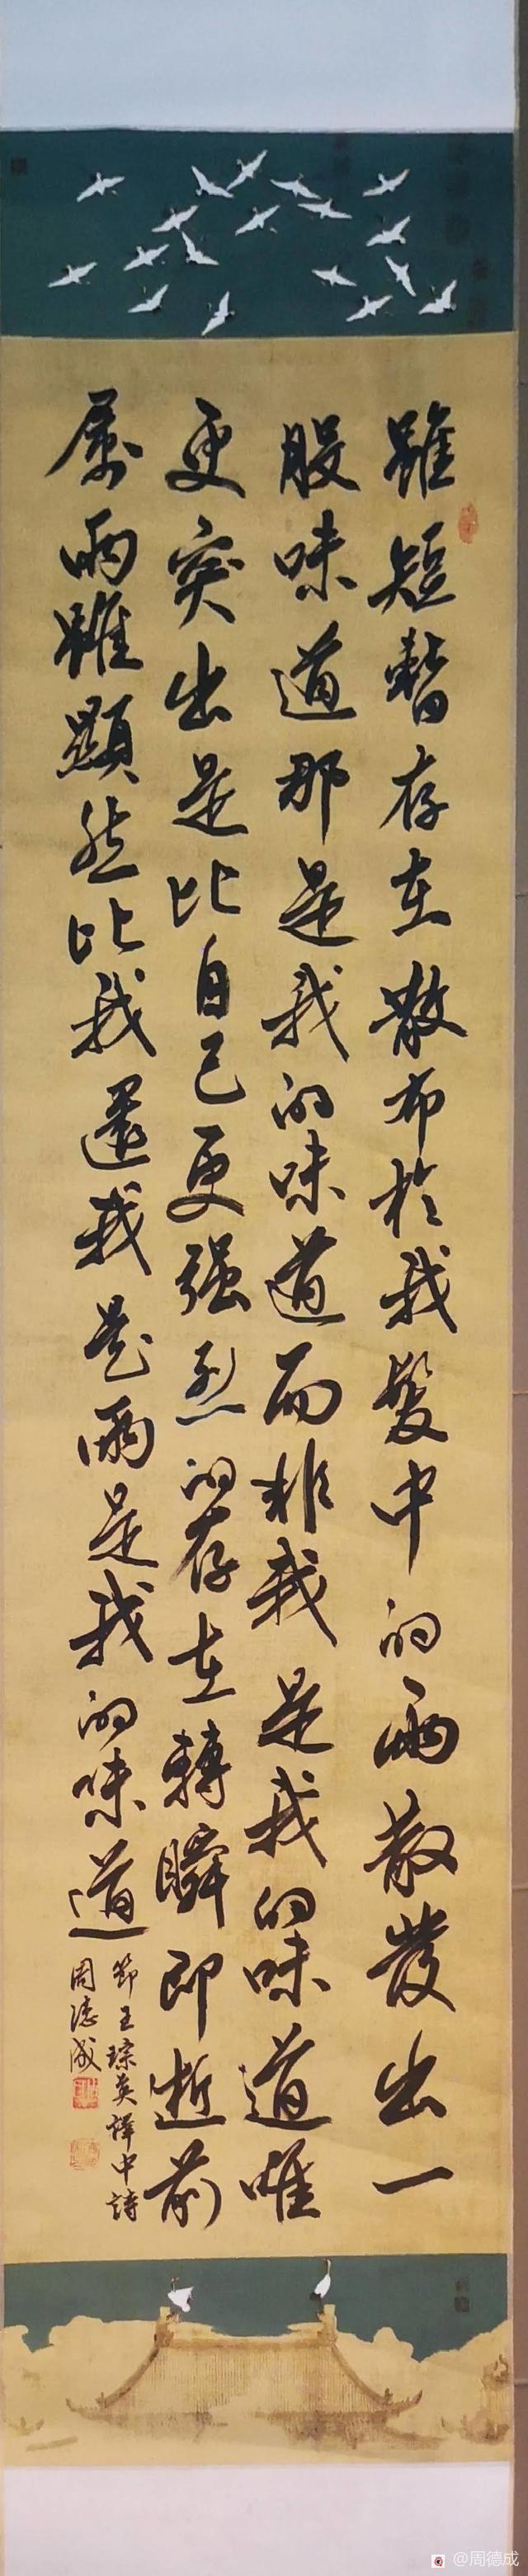 雖短暫存在散布於我髮中的雨散發出一
股味道那是我的味道而非我是我的味道唯
更突出是比自己更强烈的存在轉瞬即逝前
雨雖顯然比我還我是雨是我的味道
節王琮英譯中詩
周德成
@周德成